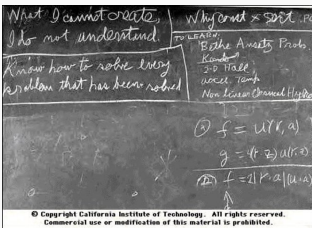 What I cannot create,
I do not understand.
Know how to solve every
problem that has been solved
Why const × sort . Po
TO LEARN:
Bethe Ansatz Probs.
Kondo
2-D Hall
accel. Temp
Non Linear Classical Hydro
f = u(r, a)
g = 
f = 2|r·a|(u·a)
© Copyright California Institute of Technology. All rights reserved.
Commercial use or modification of this material is prohibited.